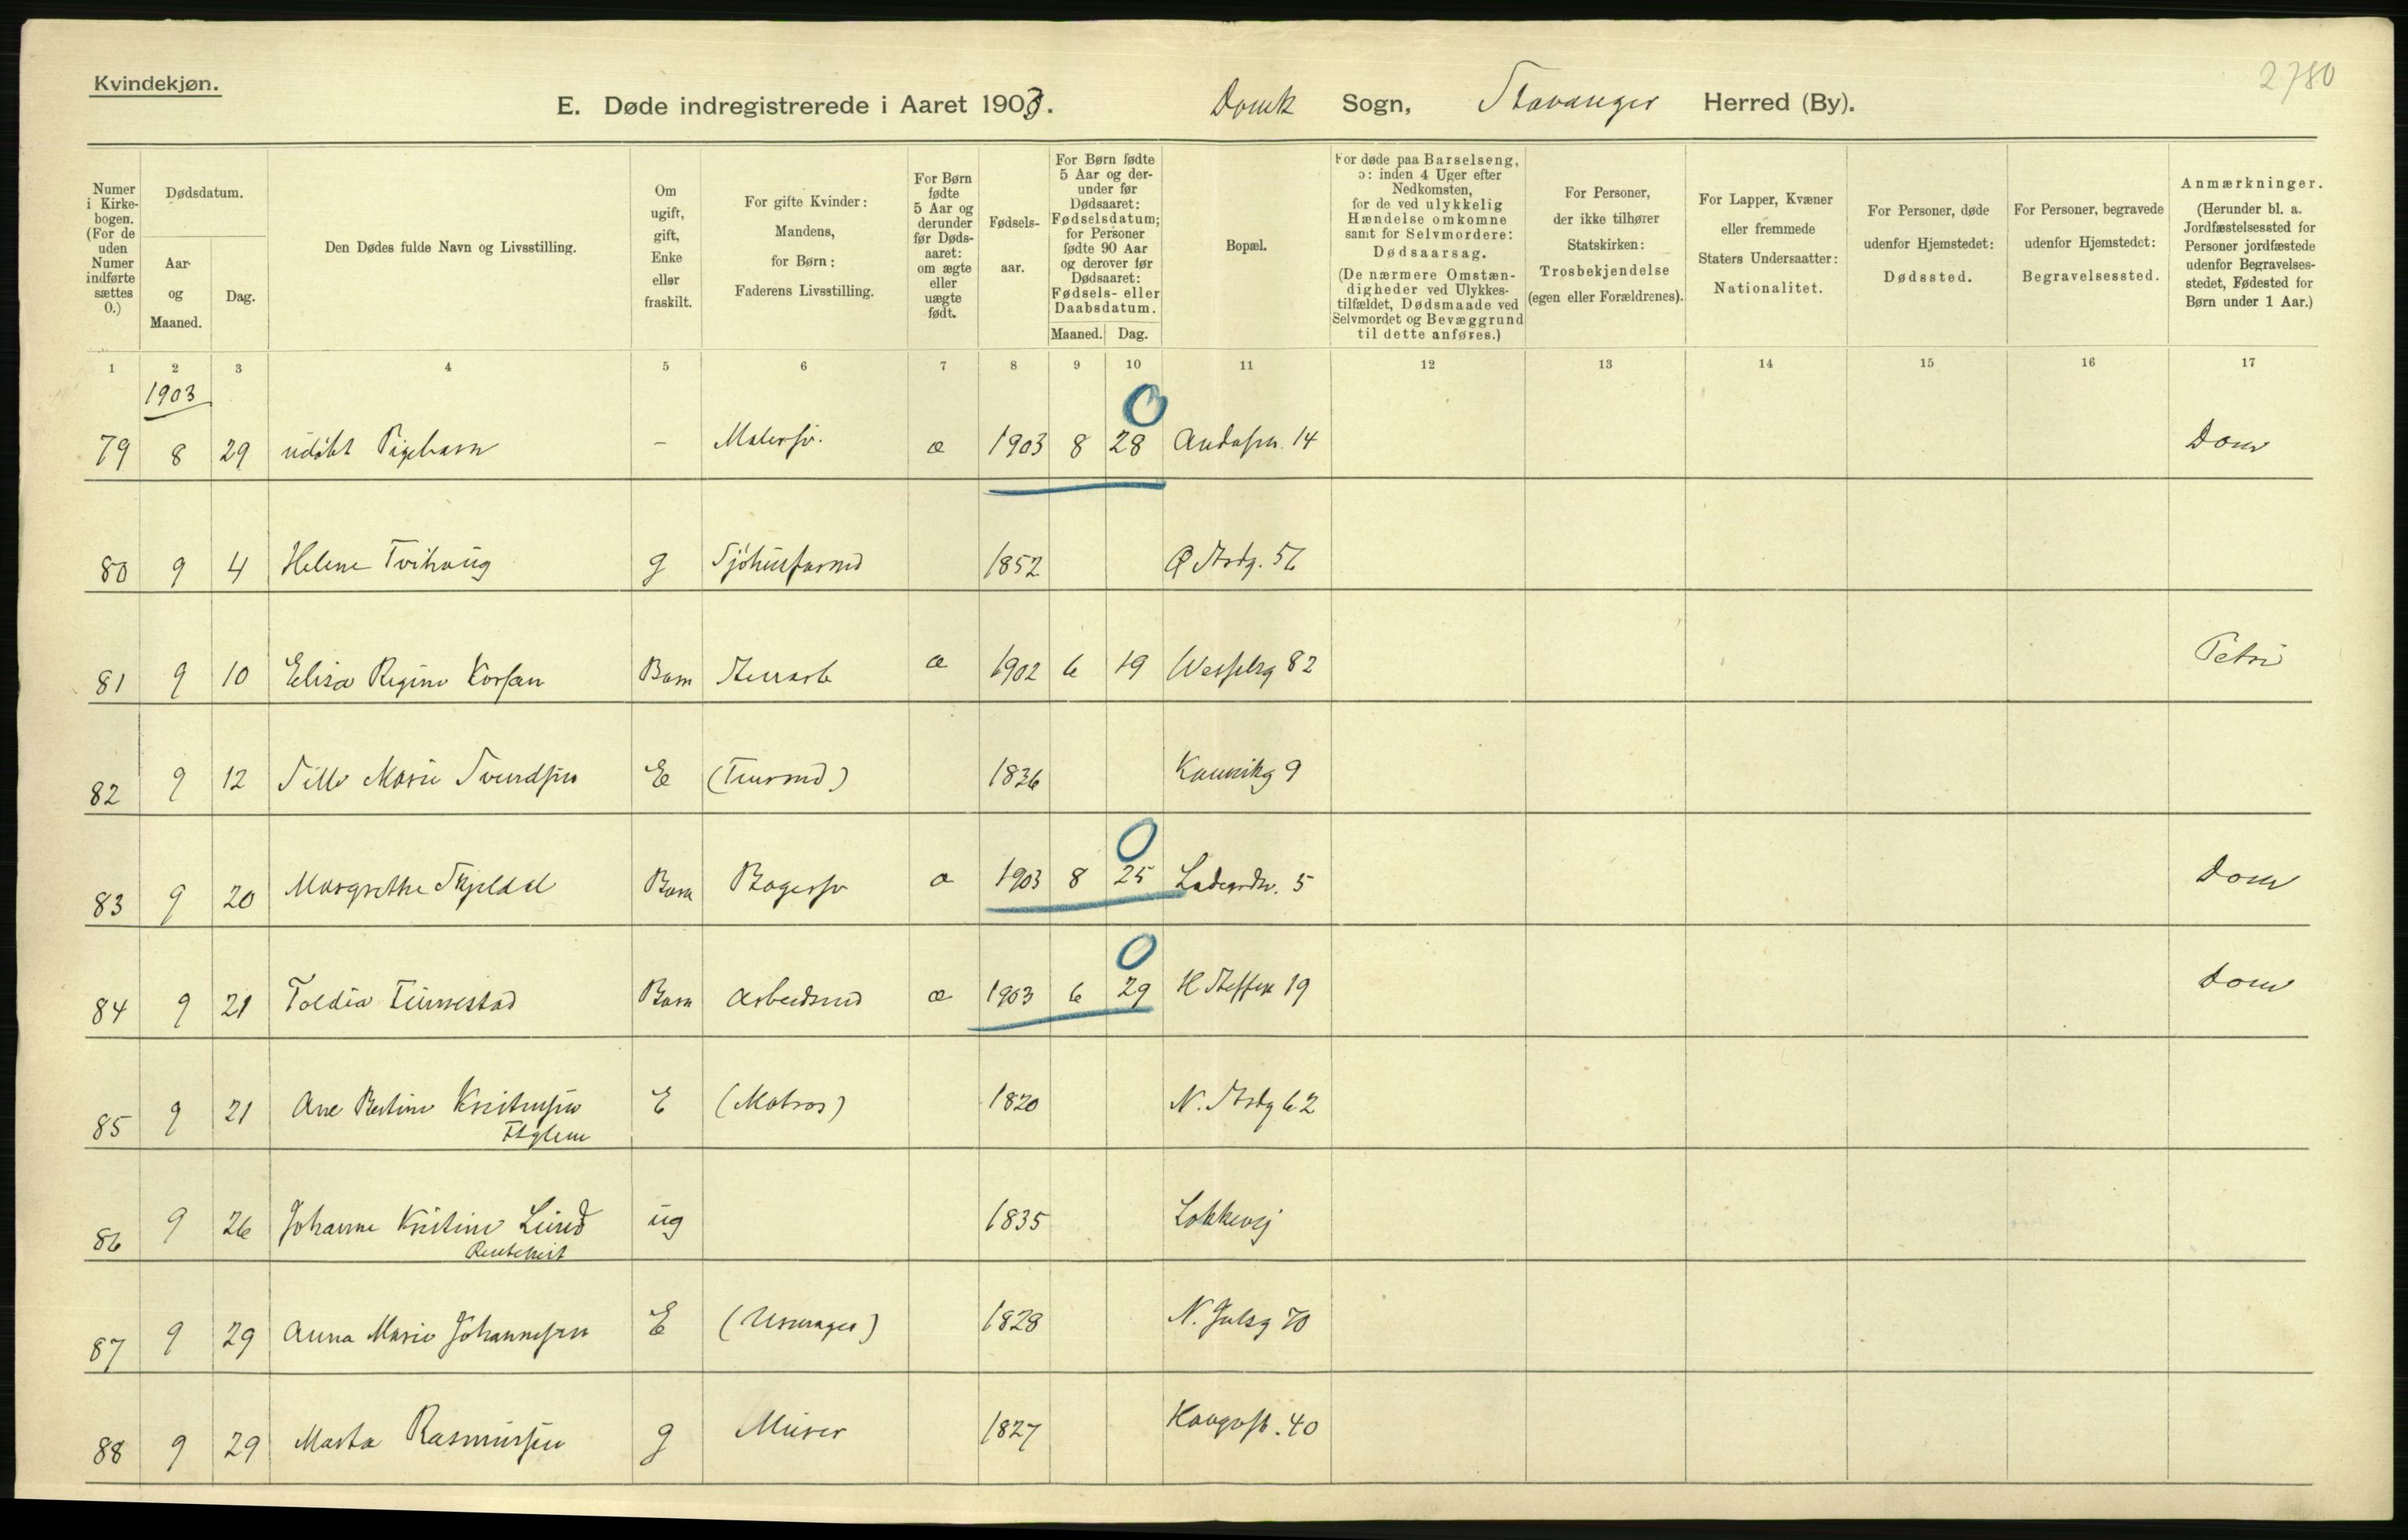 Kvindekjøn.
2780
E. Døde indregistrerede i Aaret 1903. Domk Sogn, Stavanger Herred (By).
Numer i Kirke-bogen. (For de uden Numer indførte sættes 0.)
Dødsdatum.
Aar og Maaned.
Dag.
Den Dødes fulde Navn og Livsstilling.
Om ugift, gift, Enke eller fraskilt.
For gifte Kvinder: Mandens, for Børn: Faderens Livsstilling.
For Børn fødte 5 Aar og derunder før Døds-aaret: om ægte eller uægte født.
Fødsels-aar.
For Børn fødte 5 Aar og der-under før Dødsaaret: Fødselsdatum; for Personer fødte 90 Aar og derover før Dødsaaret: Fødsels- eller Daabsdatum.
Maaned. Dag.
Bopæl.
For døde paa Barselseng, ɔ: inden 4 Uger efter Nedkomsten, for de ved ulykkelig Hændelse omkomne samt for Selvmordere: Dødsaarsag. (De nærmere Omstæn-digheder ved Ulykkes-tilfældet, Dødsmaade ved Selvmordet og Bevæggrund til dette anføres.)
For Personer, der ikke tilhører Statskirken: Trosbekjendelse (egen eller Forældrenes).
For Lapper, Kvæner eller fremmede Staters Undersaatter: Nationalitet.
For Personer, døde udenfor Hjemstedet: Dødssted.
For Personer, begravede udenfor Hjemstedet: Begravelsessted.
Anmærkninger. (Herunder bl. a. Jordfæstelsessted for Personer jordfæstede udenfor Begravelses-stedet, Fødested for Børn under 1 Aar.)
1 2 3 4 5 6 7 8 9 10 11 12 13 14 15 16 17
1903
0
79 8 29 udøbt Pigebarn - Malersv. æ 1903 8 28 14 Dom
80 9 4 Helene Tvihaug g Sjøhusformd 1852 Ø Strdg. 56
81 9 10 Elisa Regine Barn æ 1902 6 19 Wesselsg 82 Petri
82 9 12 Marie Svendsen E 1836 Kannikg 9
0
83 9 20 Margrethe Skjeldal Barn Bagersv æ 1903 8 25 Ladegrdv. 5 Dom
0
84 9 21 Finnestad Barn Arbeidsmd æ 1903 6 29 19 Dom
85 9 21 Ane Bertine Kristensen E (Matros) 1820 N. Strdg 62
86 9 26 Johanne Kristine Lund ug 1835 Løkkevej
87 9 29 Anna Marie Johannesen E (Urmager) 1828 70
88 9 29 Marta Rasmussen g Murer 1827 40